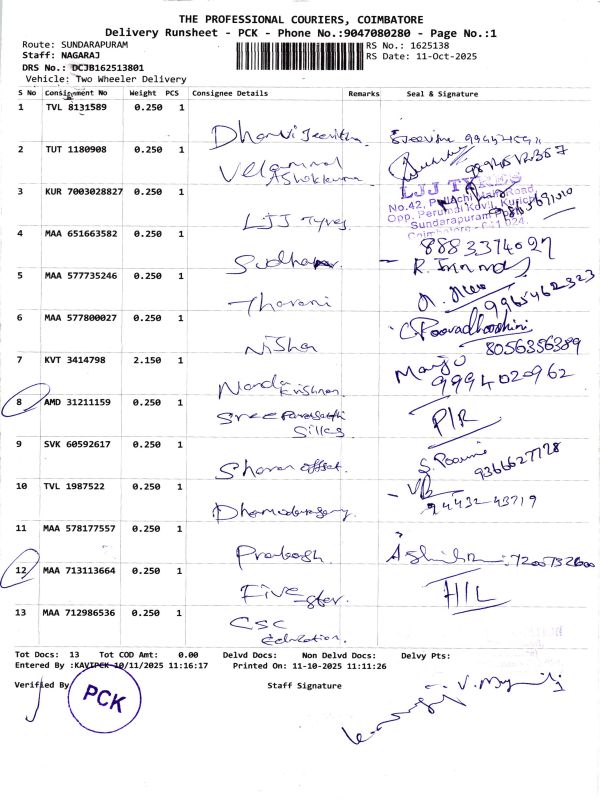 THE PROFESSIONAL COURIERS, COIMBATORE
Delivery Runsheet - PCK - Phone No.:9047080280 - Page No.:1
Route: SUNDARAPURAM RS No.: 1625138
Staff: NAGARAJ RS Date: 11-Oct-2025
DRS No.: DCJB162513801
Vehicle: Two Wheeler Delivery
S No Consignment No Weight PCS Consignee Details Remarks Seal & Signature
1 TVL 8131589 0.250 1
2 TUT 1180908 0.250 1
Vellammal
3 KUR 7003028827 0.250 1
LJJ TYRES
No.42, Pollachi Main Road,
Opp. Perumal Kovil, Kurichi
Sundarapuram
Coimbatore - 641 024.
LJJ Tyres
4 MAA 651663582 0.250 1
8883374027
Sudhakar.
5 MAA 577735246 0.250 1
9965462323
Tharani
6 MAA 577800027 0.250 1
C. Poovadharshini
8056356389
Nisha
7 KVT 3414798 2.150 1
Manju
9994020962
Nanda Krishnan
8 AMD 31211159 0.250 1
P/R
Silks
9 SVK 60592617 0.250 1
9366627728
Sharan offset.
10 TVL 1987522 0.250 1
94432-43719
11 MAA 578177557 0.250 1
Prakash
12 MAA 713113664 0.250 1
H/L
Five Star.
13 MAA 712986536 0.250 1
CSC
Education.
Tot Docs: 13 Tot COD Amt: 0.00 Delvd Docs: Non Delvd Docs: Delvy Pts:
Entered By :KAVIPCK 10/11/2025 11:16:17 Printed On: 11-10-2025 11:11:26
Verified By Staff Signature
PCK